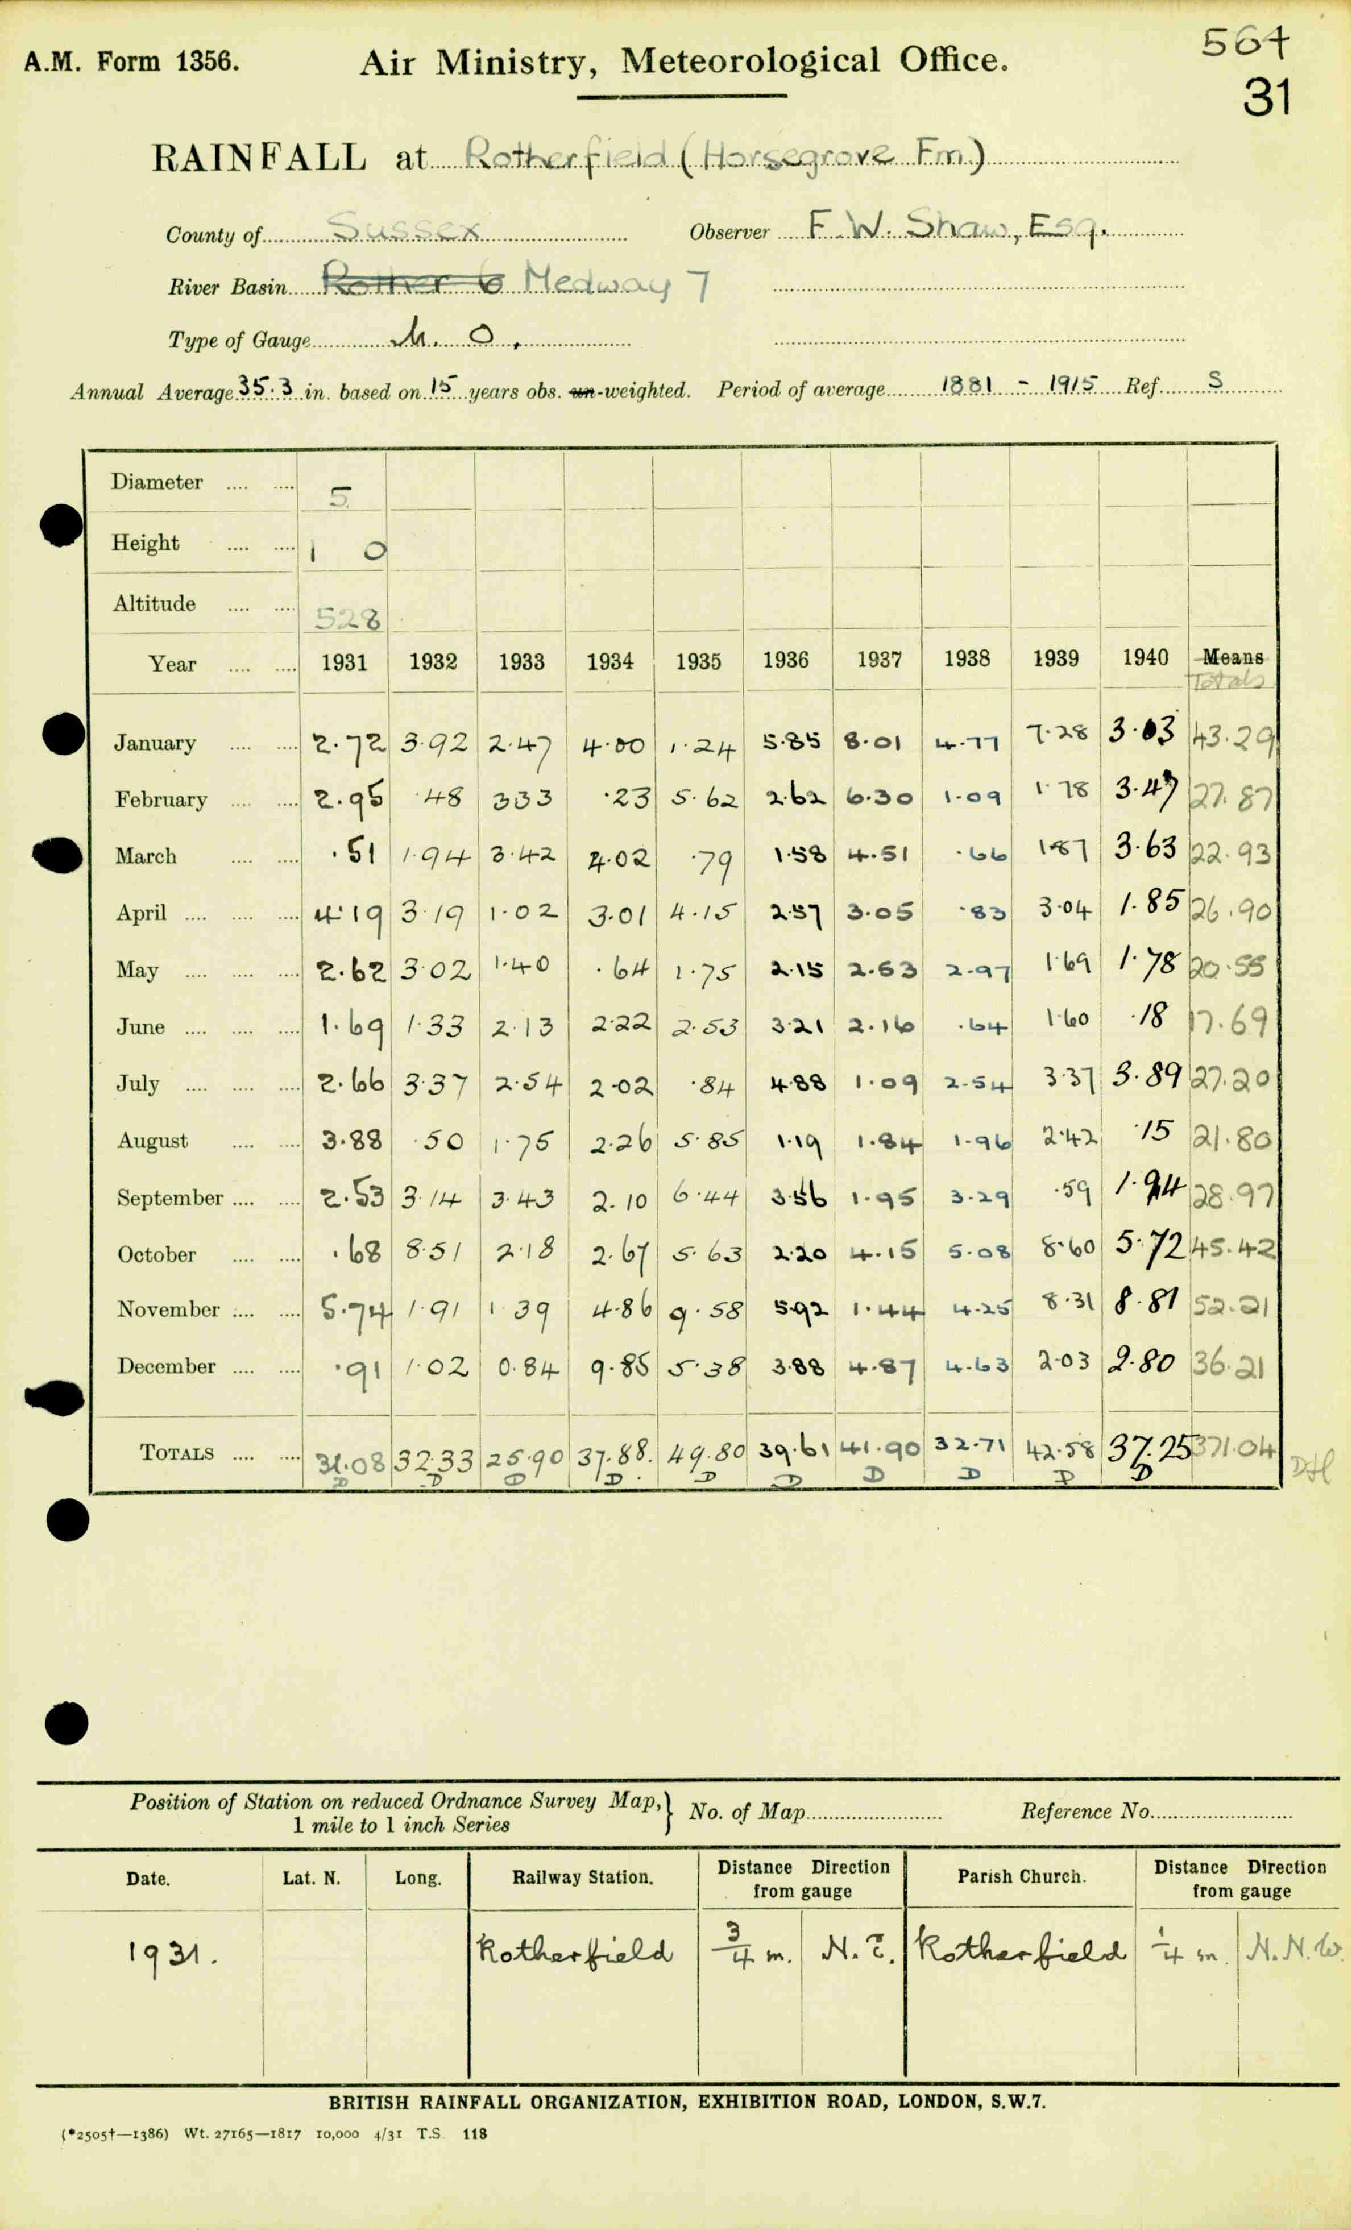 A.M. Form 1356.
Air Ministry, Meteorological Office.
564
31
RAINFALL at Rotherfield (Horsegrove Fm)
County of Sussex Observer F. W. Shaw, Esq.
River Basin Rother 6 Medway 7
Type of Gauge M. O.
Annual Average 35.3 in. based on 15 years obs. un-weighted. Period of average 1881 - 1915 Ref. S
Diameter .... .... 5
Height .... .... 1 0
Altitude .... .... 528
Year .... .... 1931 1932 1933 1934 1935 1936 1937 1938 1939 1940 Means
Totals
January .... .... 2.72 3.92 2.47 4.00 1.24 5.85 8.01 4.77 7.28 3.03 43.29
February .... .... 2.95 .48 333 .23 5.62 2.62 6.30 1.09 1.78 3.47 27.87
March .... .... .51 1.94 3.42 4.02 .79 1.58 4.51 .66 1.87 3.63 22.93
April .... .... .... 4.19 3.19 1.02 3.01 4.15 2.57 3.05 .83 3.04 1.85 26.90
May .... .... .... 2.62 3.02 1.40 .64 1.75 2.15 2.53 2.97 1.69 1.78 20.55
June .... .... .... 1.69 1.33 2.13 2.22 2.53 3.21 2.16 .64 1.60 .18 17.69
July .... .... .... 2.66 3.37 2.54 2.02 .84 4.88 1.09 2.54 3.37 3.89 27.20
August .... .... 3.88 .50 1.75 2.26 5.85 1.19 1.84 1.96 2.42 .15 21.80
September .... .... 2.53 3.14 3.43 2.10 6.44 3.56 1.95 3.29 .59 1.94 28.97
October .... .... .68 8.51 2.18 2.67 5.63 2.20 4.15 5.08 8.60 5.72 45.42
November .... .... 5.74 1.91 1.39 4.86 9.58 5.92 1.44 4.25 8.31 8.81 52.21
December .... .... .91 1.02 0.84 9.85 5.38 3.88 4.87 4.63 2.03 2.80 36.21
TOTALS .... .... 31.08 32.33 25.90 37.88. 49.80 39.61 41.90 32.71 42.58 37.25 371.04
D D D D D D D D D D
Position of Station on reduced Ordnance Survey Map,} No. of Map Reference No.
1 mile to 1 inch Series
Date. Lat. N. Long. Railway Station. Distance Direction from gauge Parish Church. Distance Direction from gauge
1931. Rotherfield 3/4 m. N. E. Rotherfield 1/4 m. N. N. W.
BRITISH RAINFALL ORGANIZATION, EXHIBITION ROAD, LONDON, S.W.7.
(*2505†—1386) Wt. 27165—1817 10,000 4/31 T.S. 118